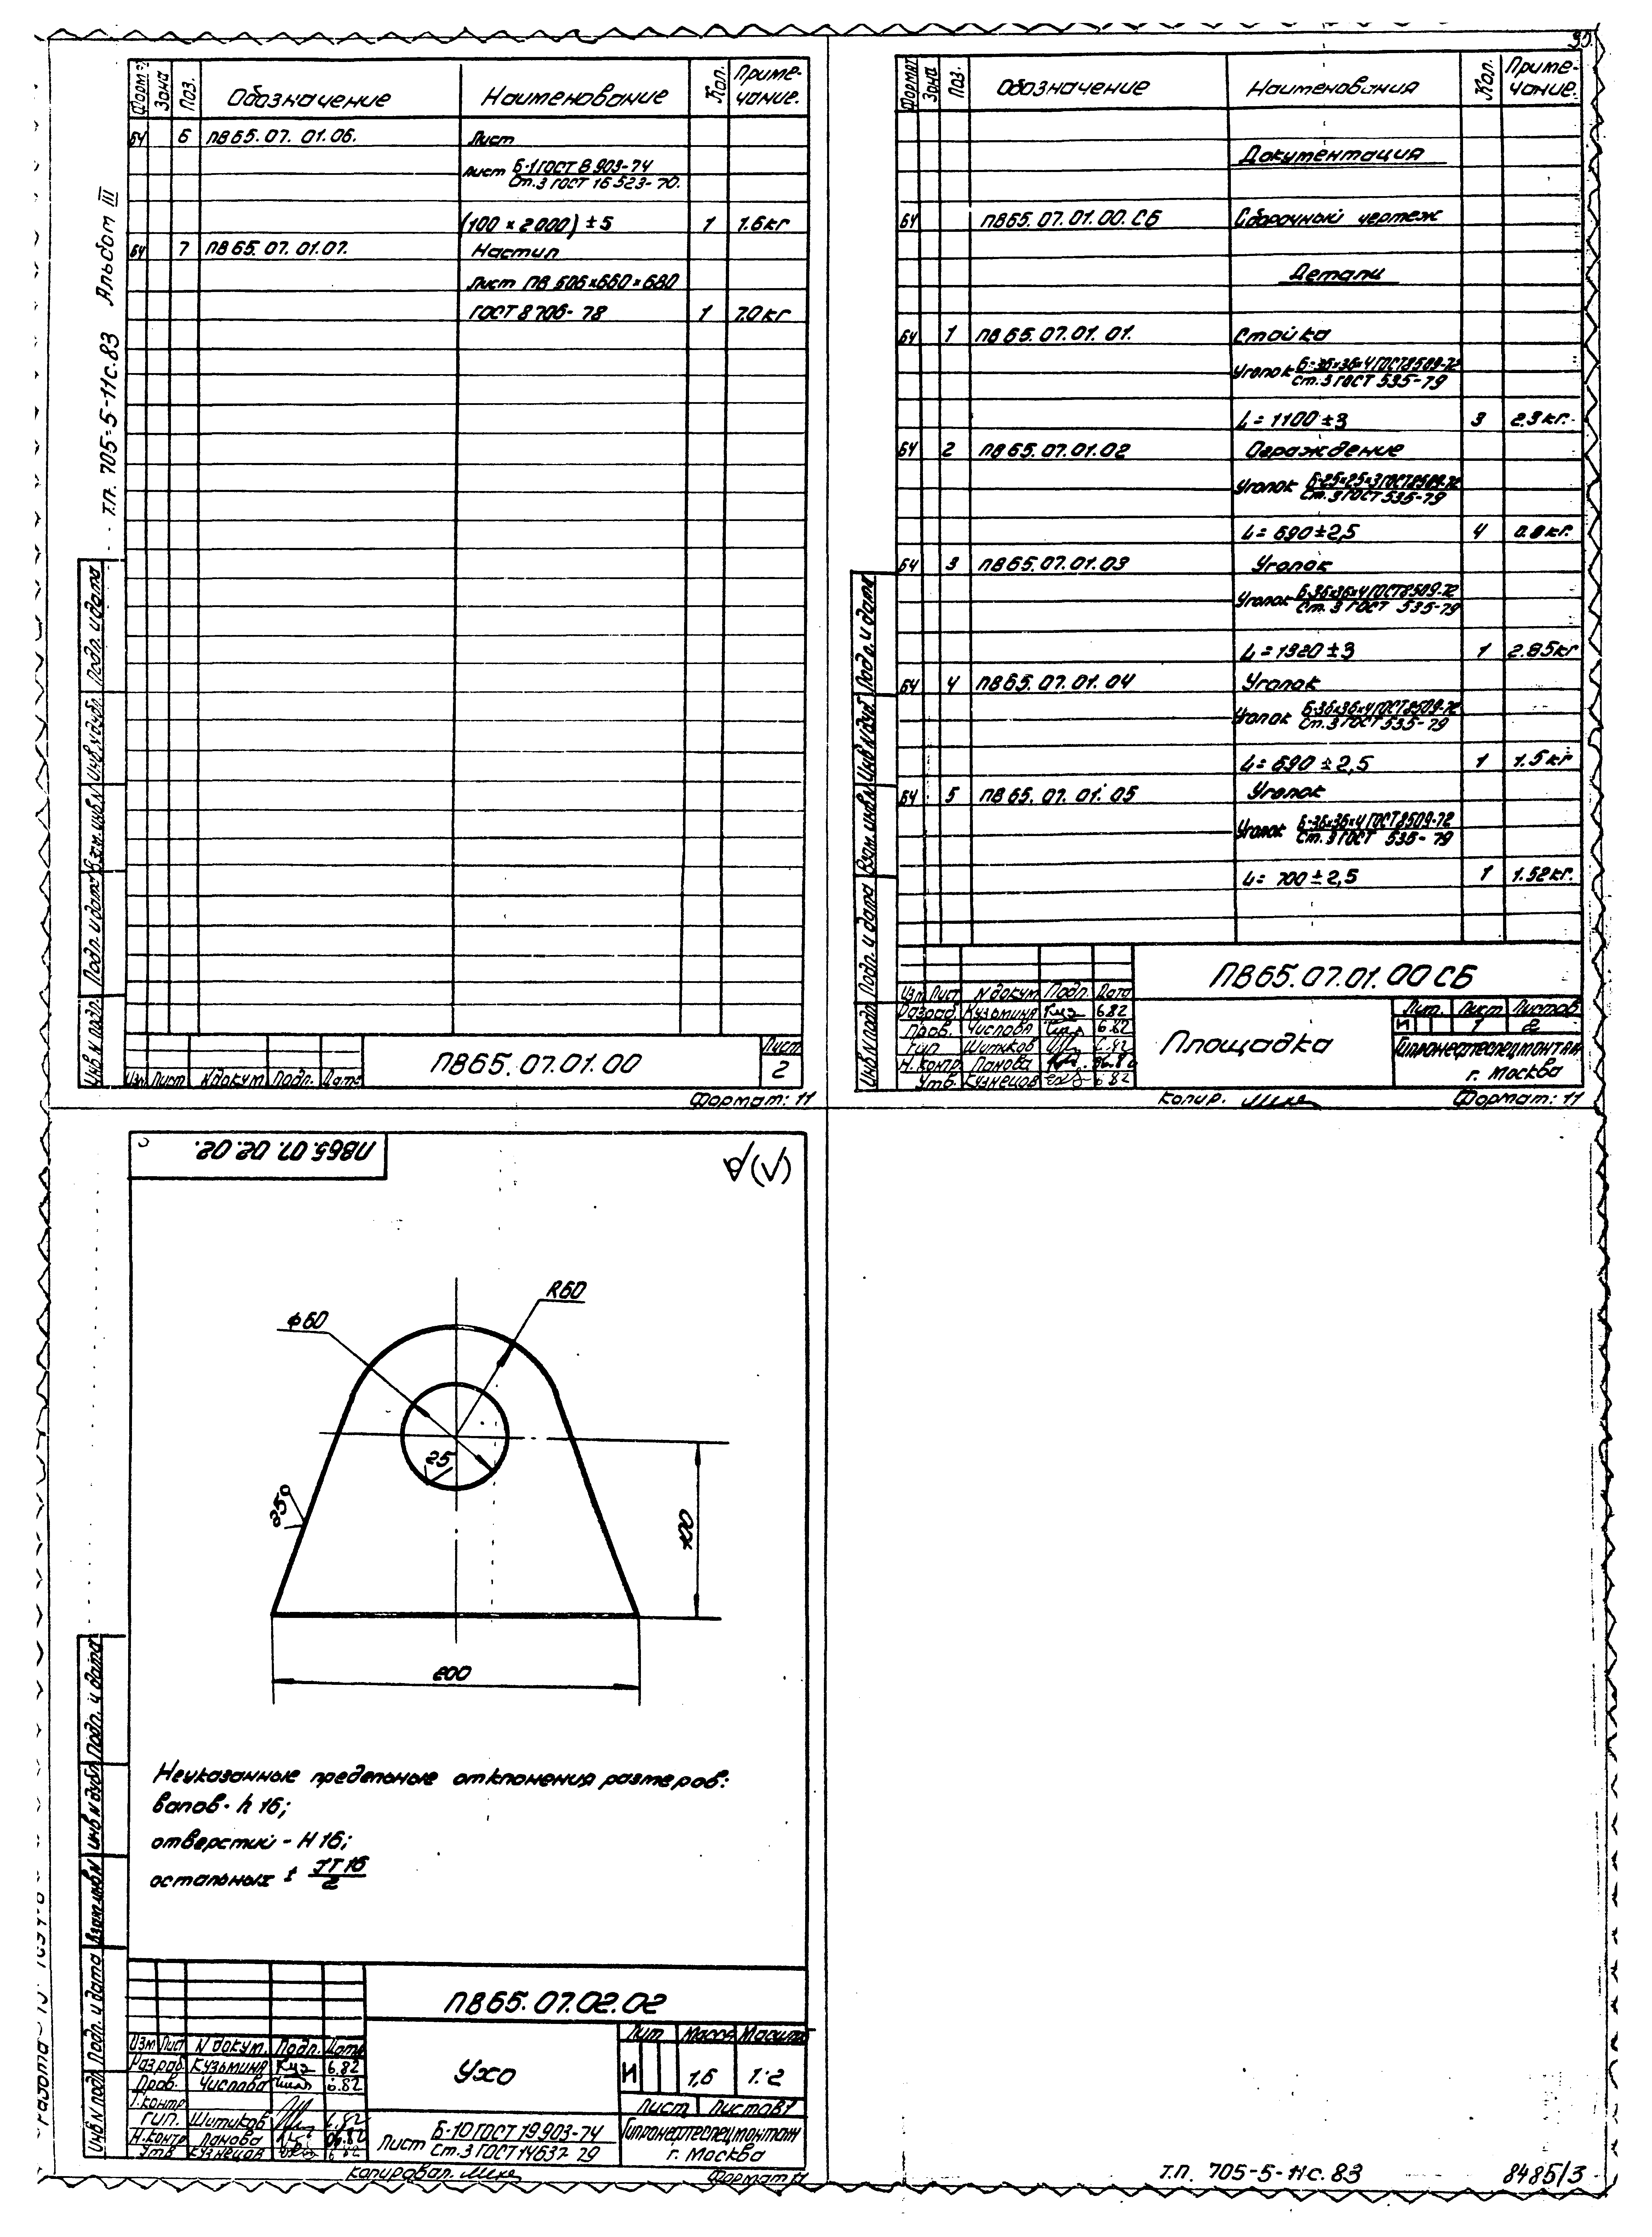 Альбом III
т.п. 705-5-11с.83
Формат Зона Поз. Обозначение Наименование Кол. Приме-
чание.
БЧ 6 ПВ65.07.01.06. Лист
Лист Б-1 ГОСТ В 903-74
Ст.3 ГОСТ 16 523-70.
(100 × 2000) ±5 1 1.6кг
БЧ 7 ПВ65.07.01.07. Настил
Лист ПВ 506×660×680
ГОСТ 8706-78 1 7.0кг
Подп. и дата
Инв N дубл.
Взам. инв. N
Подп. и дата
Инв N подл.
Изм Лист N докум Подп. Дата
ПВ65.07.01.00
Лист
2
Формат: 11
Формат Зона Поз. Обозначение Наименования Кол. Приме-
чание.
Документация
БЧ ПВ65.07.01.00.СБ Сборочный чертеж
Детали
БЧ 1 ПВ65.07.01.01. Стойка
Уголок Б-36×36×4 ГОСТ 8509-72
Ст.3 ГОСТ 535-79
L=1100±3 3 2.3кг.
БЧ 2 ПВ65.07.01.02 Ограждение
Уголок Б-25×25×3 ГОСТ 8509-72
Ст.3 ГОСТ 535-79
L=690±2,5 4 0.8кг.
БЧ 3 ПВ65.07.01.03 Уголок
Уголок Б-36×36×4 ГОСТ 8509-72
Ст.3 ГОСТ 535-79
L=1320±3 1 2.85кг
БЧ 4 ПВ65.07.01.04 Уголок
Уголок Б-36×36×4 ГОСТ 8509-72
Ст.3 ГОСТ 535-79
L=690±2,5 1 1.5кг
БЧ 5 ПВ65.07.01.05 Уголок
Уголок Б-36×36×4 ГОСТ 8509-72
Ст.3 ГОСТ 535-79
L=700±2,5 1 1.52кг.
Подп. и дата
Инв N дубл
Взам. инв. N
Подп. и дата
Инв N подл
ПВ65.07.01.00СБ
Изм Лист N докум Подп. Дата
Разраб. Кузьмина 6.82
Пров. Числова 6.82
Гип Шитиков 6.82
Н. контр. Панова 06.82
Утв. Кузнецов 6.82
Площадка
Лит. Лист Листов
И 1 2
Гипронефтеспецмонтаж
г. Москва
Копир. Формат: 11
ПВ65.07.02.02.
R60
ф60
25
250
100
200
Неуказанные предельные отклонения размеров:
валов - h 16;
отверстий - H 16;
остальных ± IT 16
2
Подп. и дата
Инв N дубл
Взам инв N
Подп. и дата
Инв N подл
ПВ65.07.02.02
Изм Лист N докум. Подп. Дата
Разраб. Кузьмина 6.82
Пров. Числова 6.82
Т.контр
Гип. Шитиков 6.82
Н.контр Панова 06.82
Утв Кузнецов 6.82
Ухо
Лит Масса Масшт
И 1,6 1:2
Лист Листов 1
Лист Б-10 ГОСТ 19903-74
Ст.3 ГОСТ 14637-79
Гипронефтеспецмонтаж
г. Москва
Копировал. Формат 11
т.п. 705-5-11с.83 8485/3